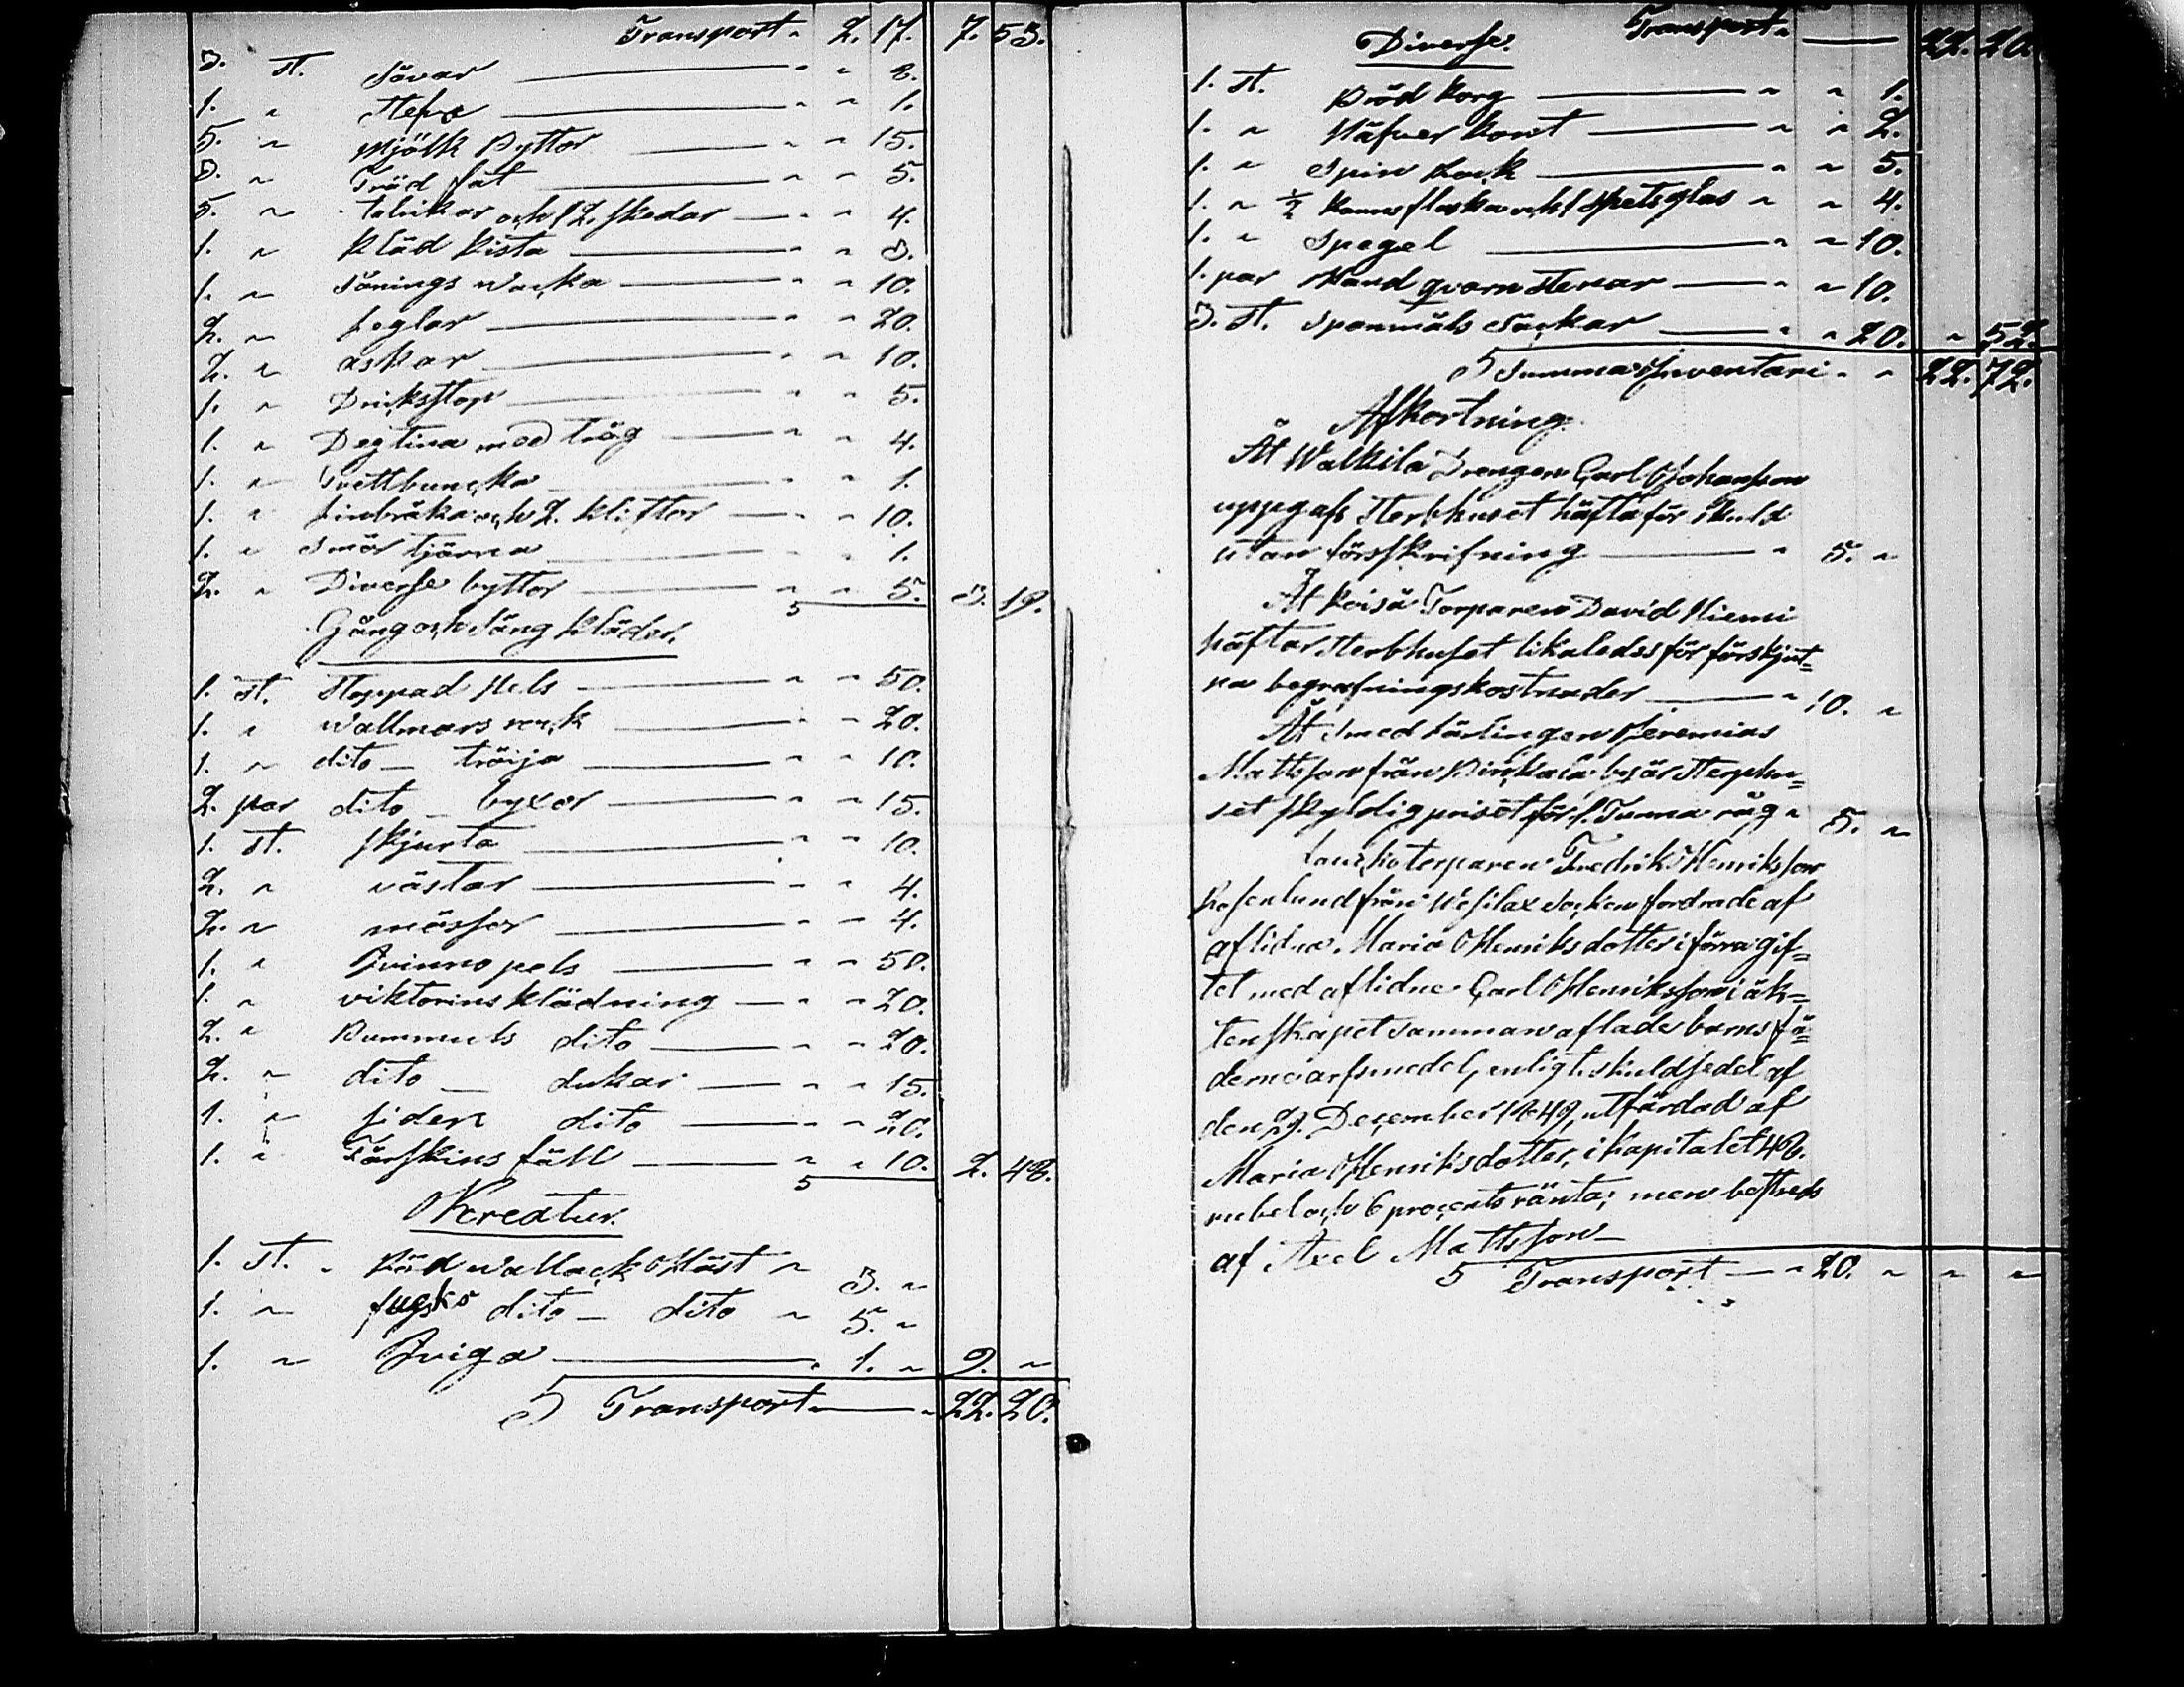 Transport " 2. 17. 7. 53.
3. st. Såvar " " 8.
1. " Stefva " " 1.
5. " Mjölk Byttor " " 15.
3. " Träd fat " " 5.
5. " talrikar och 12. skedar " " 4.
1. " Kläd Kista " " 3.
1. " Sånings wacka " " 10.
2. " Leglar " " 20.
2. " askar " " 10.
1. " Dricksstop " " 5.
1. " Degtina med tråg " " 4.
1. " Tvättbuncka " " 1.
1. " Linbråka och 2. Kliftor " " 10.
1. " Smör tjärna " " 1.
2. " Diverse byttor " " 5. 3. 19.
Gång och Säng Kläder.
1. st. Stoppad Pels " " 50.
1. " Wallmars rock " " 20.
1. " dito tröija " " 10.
2. par dito byxor " " 15.
1. st. skjorta " " 10.
2. " västar " " 4.
2. " mössor " " 4.
1. " Qvinno pels " " 50.
1. " viktorins klädning " " 20.
2. " Bummuls dito " " 20.
2. " dito dukar " " 15.
1. " siden dito " " 20.
1. " Fårskins fäll " " 10. 2. 48.
Kreatur.
1. st. " Röd wallack Häst " 3. "
1. " dito dito " 5. "
1. " Qviga " 1. " 9. "
S Transport " 22. 20.
Diverse. Transport " 22. 20.
1. st. Bröd Korg " " 1.
1. " Näfver Kont " " 2.
1. " Spin Rock " " 5.
1. " ½ Kans flaska och 1 spetsglas " " 4.
1. " Spegel " " 10.
1. par Hand qvarn stenar " " 10.
3. st. Spanmåls Säckar " " 20. " 52.
S Summa Inventari " " 22. 72.
Afkortning.
Åt Walkila Drengen Carl Johansson
uppgafs Sterbhuset häfta för skuld
utan förskrifning " 5. "
Åt Koisä Torparen David Niemi
häftar Sterbhuset likaledes för förskjut=
na begrafningskostnader " 10. "
Åt Smed Lärlingen Jeremias
Mattsson från Birkala by är Sterphu=
set skyldig priset för 1. Tunna råg " 5. "
Torparen Fredrik Henriksson
Rosenlund från Wesilax Socken fordrade af
aflidna Maria Henriksdotter i förra gif=
tet med aflidne Carl Henriksson i äk=
tenskapet samman aflade barns fä=
derne arfsmedel, enligt skuldsedel af
den 29. December 1849, utfärdad af
Maria Henriksdotter, i kapitalet 48.
rubel och 6 procents ränta; men bestreds
af Axel Mattsson
S Transport " 20. " " "